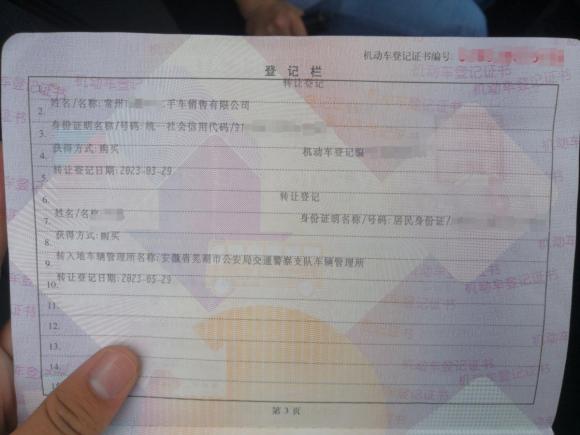 机动车登记证书编号:
登记栏
1. 转让登记
2. 姓名/名称:常州 手车销售有限公司
3. 身份证明名称/号码:统一社会信用代码/
4. 获得方式:购买 机动车登记编
5. 转让登记日期:2023-03-29
6. 转让登记
7. 姓名/名称 身份证明名称/号码:居民身份证/
8. 获得方式:购买
9. 转入地车辆管理所名称:安徽省芜湖市公安局交通警察支队车辆管理所
10. 转让登记日期:2023-03-29
11.
12.
13.
14.
第3页